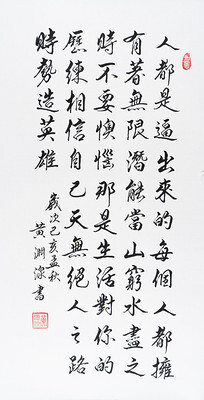 人都是逼出來的每個人都擁
有著無限潛能當山窮水盡之
時不要懊惱那是生活對你的
歷練相信自己天無絕人之路
時勢造英雄
歲次己亥孟秋
黃淵深書